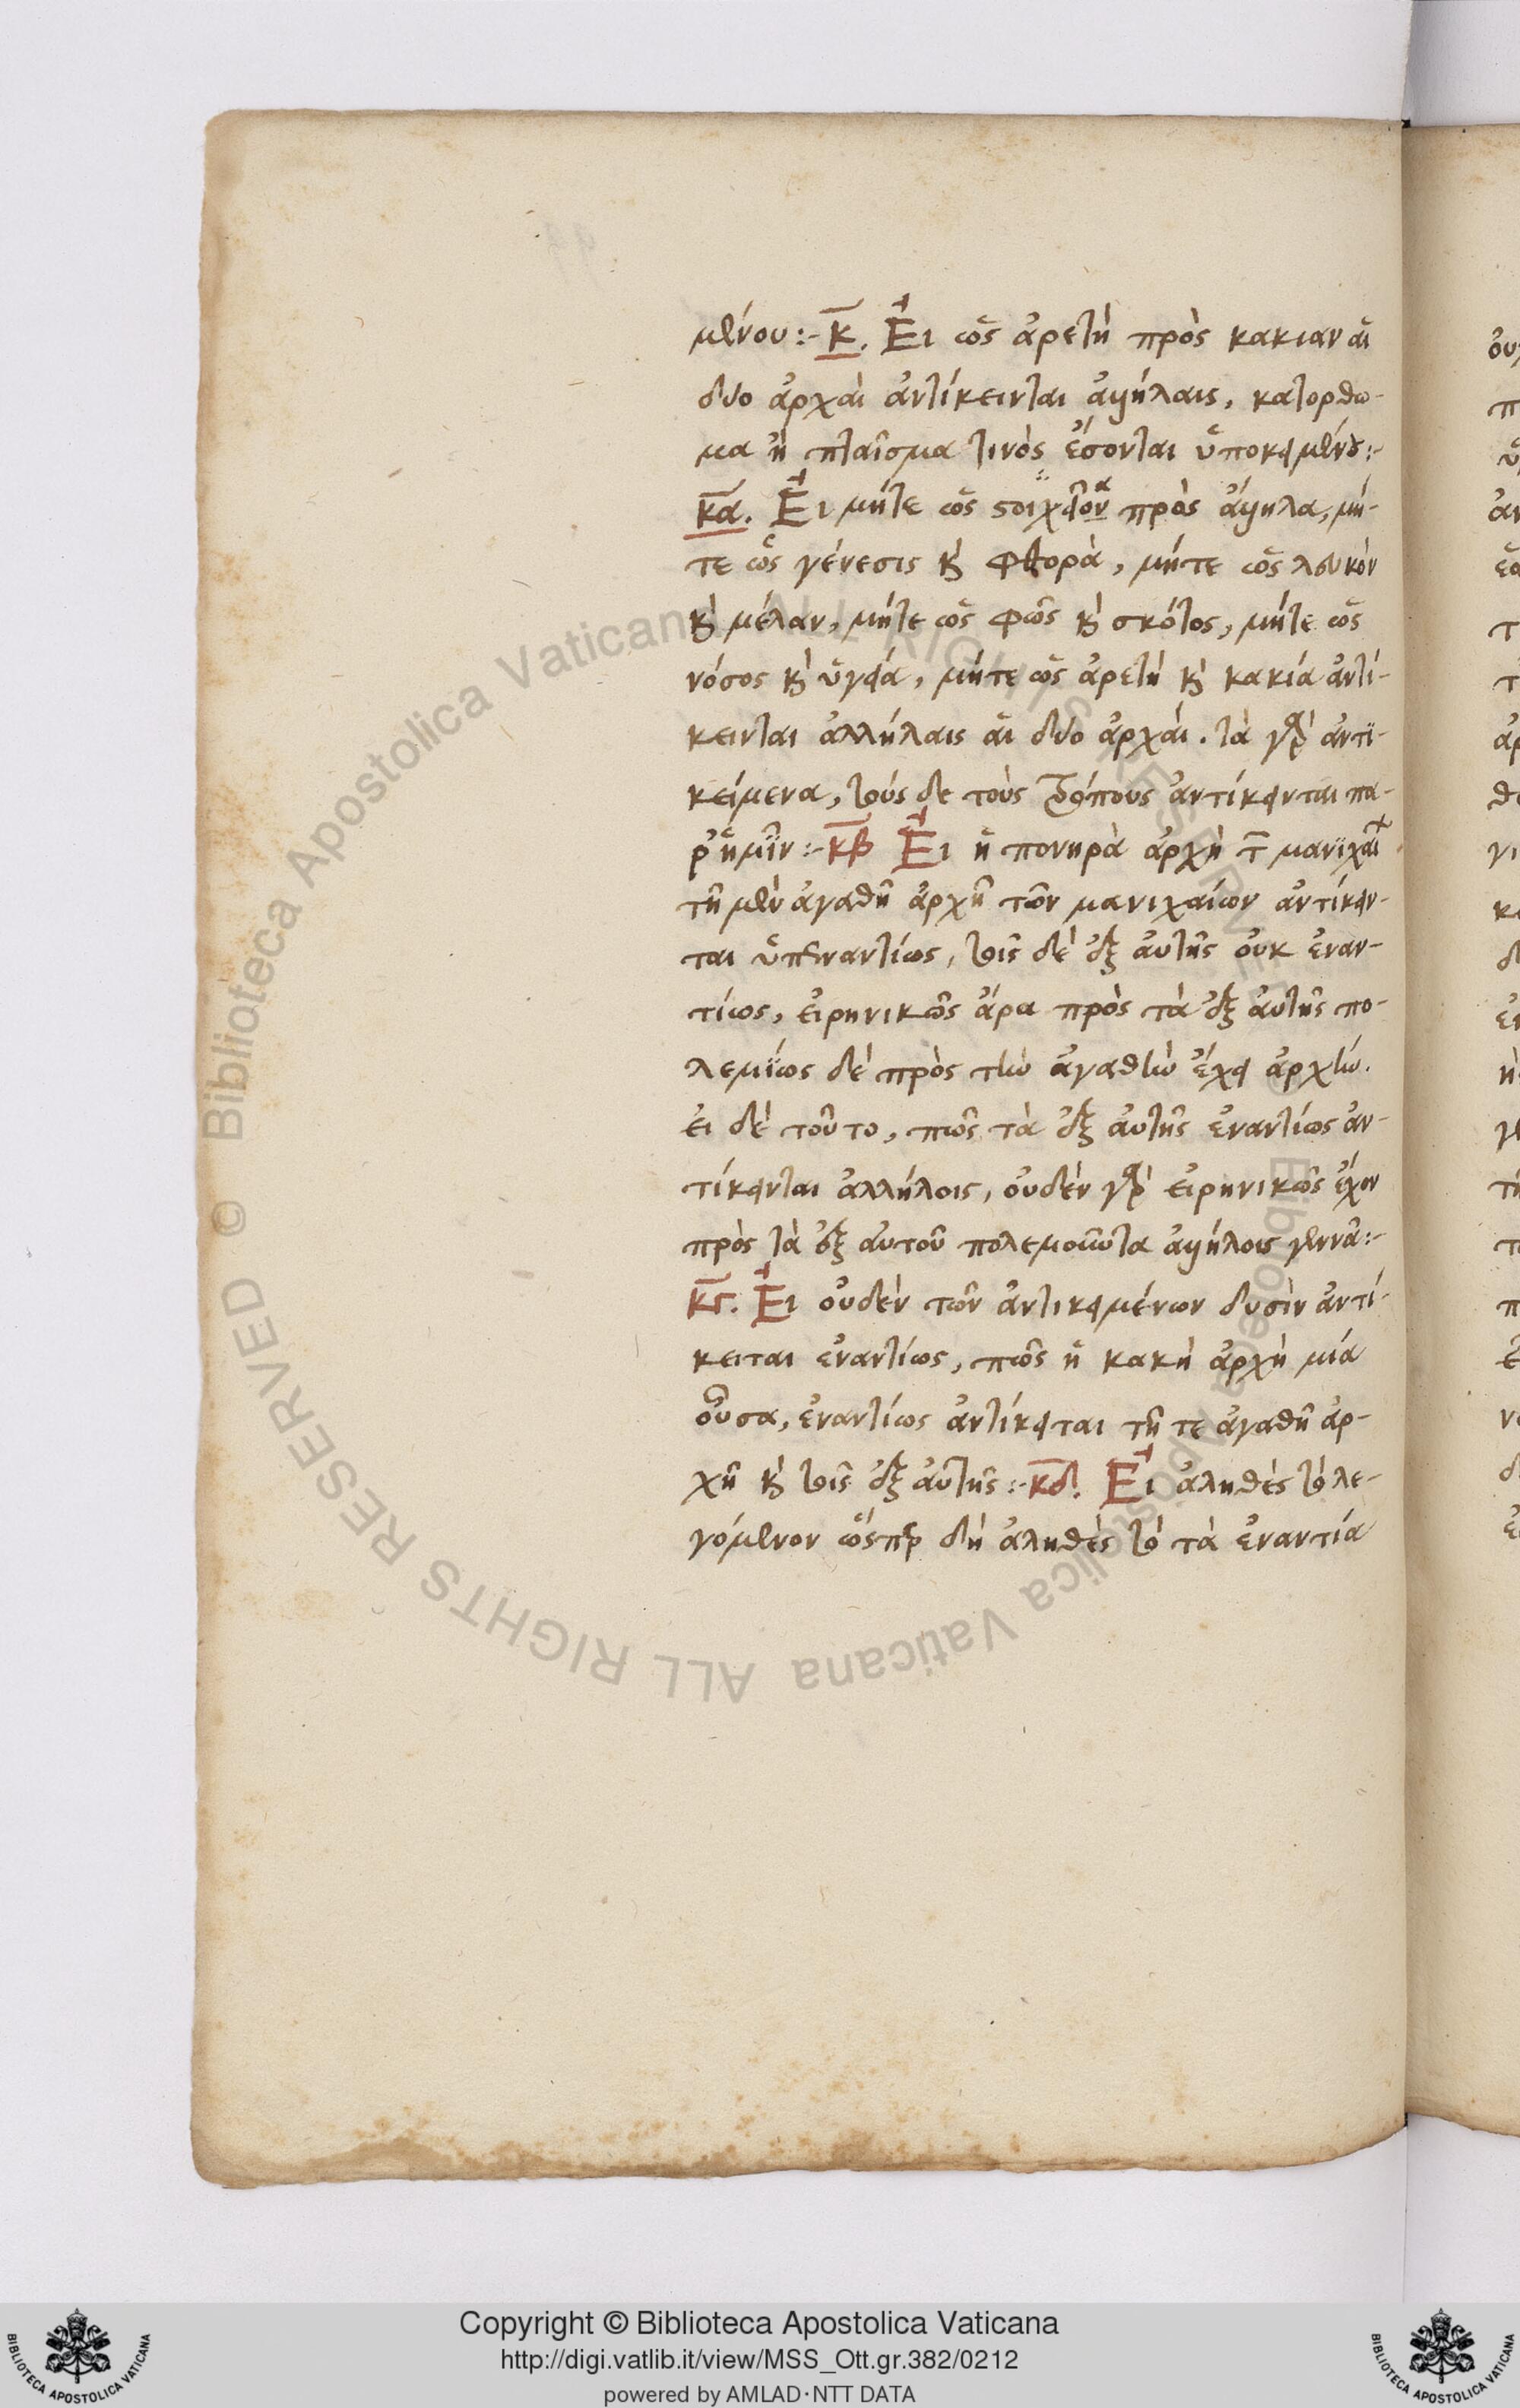 μένου:- κ. Εἰ ὡς ἀρετὴ πρὸς κακιαν αἱ
δύο ἀρχαὶ ἀντίκεινται ἀλλήλαις, κατορθω-
μα ἢ πταῖσμα τινὸς ἔσονται ὑποκειμένου:-
κα. Εἰ μήτε ὡς στοιχεῖον πρὸς ἄλληλα, μή-
τε ὡς γένεσις καὶ φθορὰ, μήτε ὡς λευκὸν
καὶ μέλαν, μήτε ὡς φῶς καὶ σκότος, μήτε ὡς
νόσος καὶ ὑγεία, μήτε ὡς ἀρετὴ καὶ κακία ἀντί-
κεινται ἀλλήλαις αἱ δύο ἀρχαί. τὰ γὰρ ἀντι-
κείμενα, τούς δε τοὺς τρόπους ἀντίκεινται πα-
ρ' ἡμῖν:- κβ Εἰ ἡ πονηρὰ ἀρχὴ τ μανιχαι
τῇ μὲν ἀγαθῇ ἀρχῇ τῶν μανιχαίων ἀντίκειν-
ται ὑπεναντίως, τοῖς δὲ ἐξ αὐτῆς οὐκ ἐναν-
τίως, εἰρηνικῶς ἄρα πρὸς τὰ ἐξ αὐτῆς πο-
λεμίως δὲ πρὸς τὴν ἀγαθὴν ἔχει ἀρχήν.
εἰ δὲ τοῦτο, πῶς τὰ ἐξ αὐτῆς ἐναντίως ἀν-
τίκεινται ἀλλήλοις, οὐδὲν γὰρ εἰρηνικῶς ἔχον
πρὸς τὰ ἐξ αὐτοῦ πολεμοῦντα ἀλλήλοις γεννᾶ:-
κγ. Εἰ οὐδὲν τῶν ἀντικειμένων δυσὶν ἀντί-
κειται ἐναντίως, πῶς ἡ κακὴ ἀρχὴ μία
οὖσα, ἐναντίως ἀντίκειται τῇ τε ἀγαθῇ ἀρ-
χῇ καὶ τοῖς ἐξ αὐτῆς:- κδ. Εἰ ἀληθὲς τὸ λε-
γόμενον ὥσπερ δὴ ἀληθὲς τὸ τὰ ἐναντία
Copyright © Biblioteca Apostolica Vaticana
http://digi.vatlib.it/view/MSS_Ott.gr.382/0212
powered by AMLAD·NTT DATA